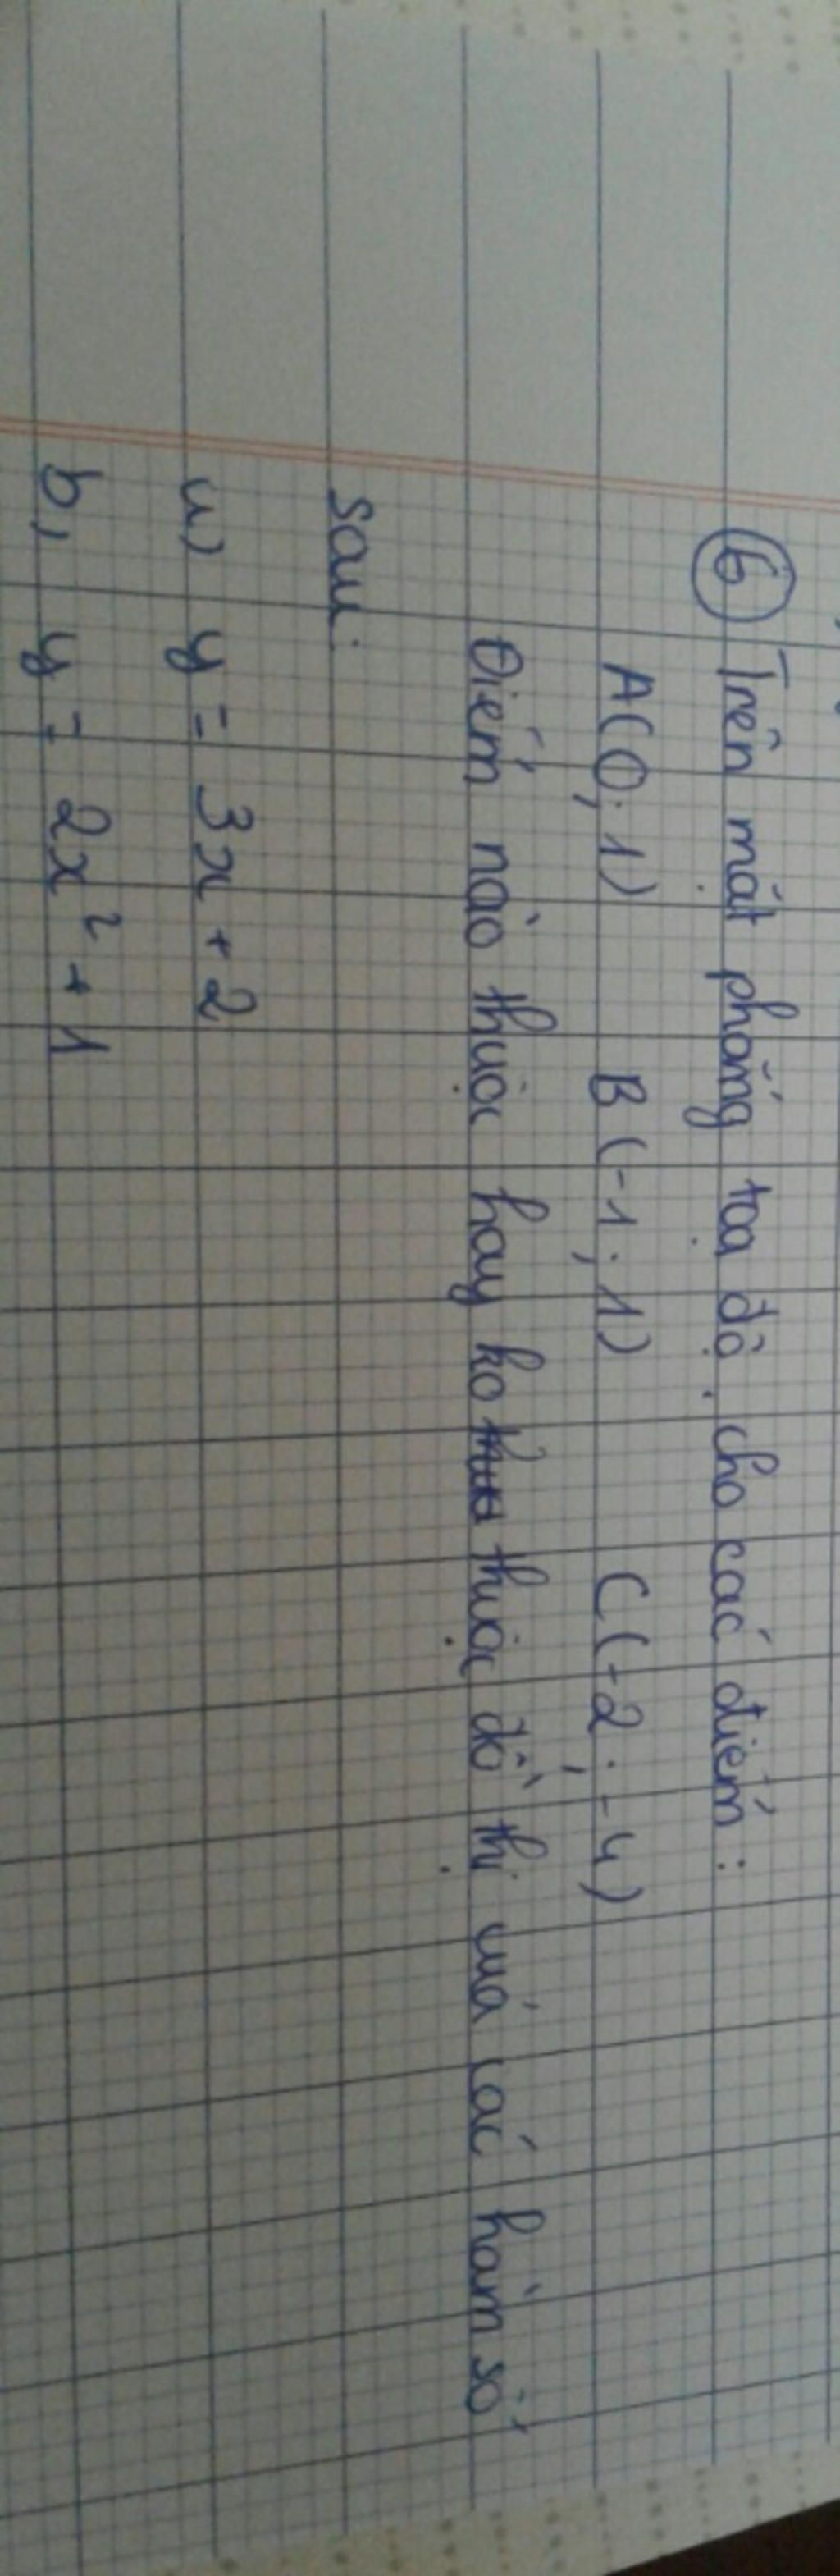 6 Trên mặt phẳng tọa độ, cho các điểm :
A(0; 1) B(-1; 1) C(-2; -4)
Điểm nào thuộc hay ko thuộc đồ thị cuả các hàm số
sau:
a) y = 3x + 2
b, y = 2x² + 1